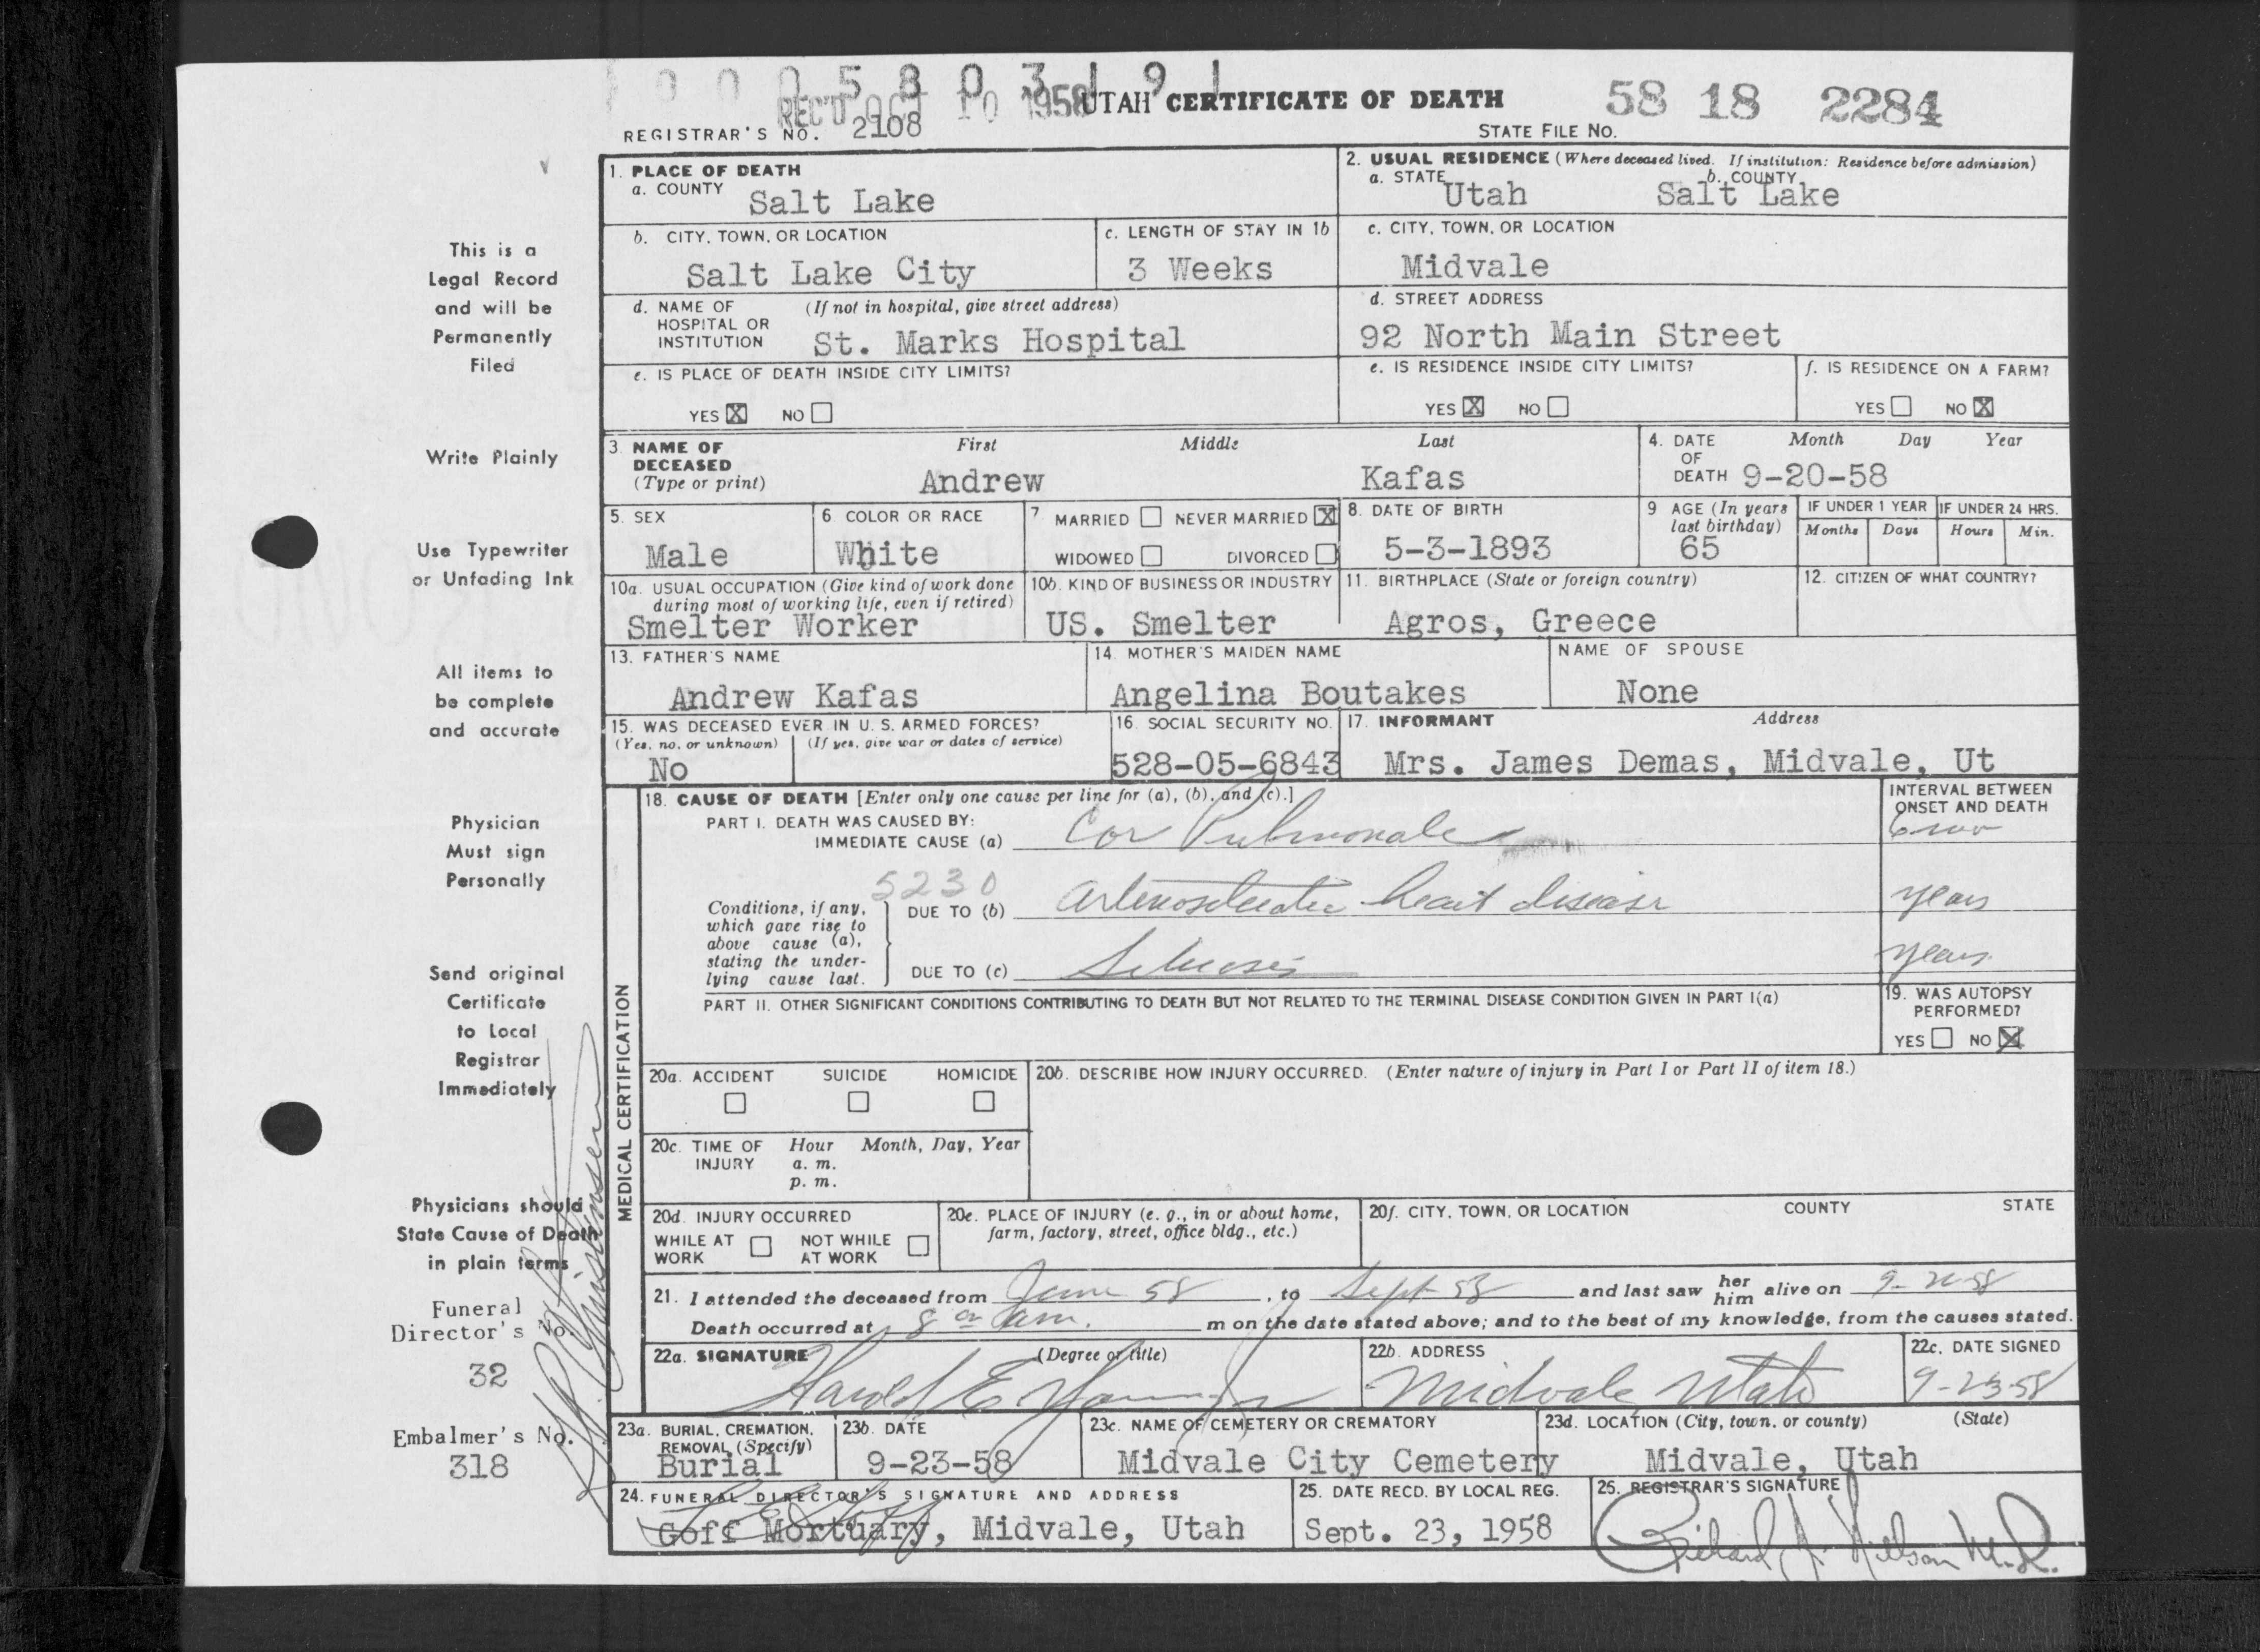 0 0 0 5 8 0 3 1 9 1
REC'D OCT 10 1958
UTAH CERTIFICATE OF DEATH
58 18 2284
REGISTRAR'S NO. 2108
STATE FILE NO.
This is a
Legal Record
and will be
Permanently
Filed
Write Plainly
Use Typewriter
or Unfading Ink
All items to
be complete
and accurate
Physician
Must sign
Personally
Send original
Certificate
to Local
Registrar
Immediately
Physicians should
State Cause of Death
in plain terms
Funeral
Director's No.
32
Embalmer's No.
318
1. PLACE OF DEATH
a. COUNTY
Salt Lake
2. USUAL RESIDENCE (Where deceased lived. If institution: Residence before admission)
a. STATE Utah b. COUNTY Salt Lake
b. CITY, TOWN, OR LOCATION
Salt Lake City
c. LENGTH OF STAY IN 1b
3 Weeks
c. CITY, TOWN, OR LOCATION
Midvale
d. NAME OF HOSPITAL OR INSTITUTION (If not in hospital, give street address)
St. Marks Hospital
d. STREET ADDRESS
92 North Main Street
e. IS PLACE OF DEATH INSIDE CITY LIMITS?
YES X NO
e. IS RESIDENCE INSIDE CITY LIMITS?
YES X NO
f. IS RESIDENCE ON A FARM?
YES NO X
3. NAME OF DECEASED (Type or print)
First Middle Last
Andrew Kafas
4. DATE OF DEATH Month Day Year
9-20-58
5. SEX
Male
6. COLOR OR RACE
White
7 MARRIED NEVER MARRIED X
WIDOWED DIVORCED
8. DATE OF BIRTH
5-3-1893
9 AGE (In years last birthday)
65
IF UNDER 1 YEAR IF UNDER 24 HRS.
Months Days Hours Min.
10a. USUAL OCCUPATION (Give kind of work done during most of working life, even if retired)
Smelter Worker
10b. KIND OF BUSINESS OR INDUSTRY
US. Smelter
11. BIRTHPLACE (State or foreign country)
Agros, Greece
12. CITIZEN OF WHAT COUNTRY?
13. FATHER'S NAME
Andrew Kafas
14. MOTHER'S MAIDEN NAME
Angelina Boutakes
NAME OF SPOUSE
None
15. WAS DECEASED EVER IN U. S. ARMED FORCES?
(Yes, no, or unknown) (If yes, give war or dates of service)
No
16. SOCIAL SECURITY NO.
528-05-6843
17. INFORMANT Address
Mrs. James Demas, Midvale, Ut
MEDICAL CERTIFICATION
18. CAUSE OF DEATH [Enter only one cause per line for (a), (b), and (c).]
INTERVAL BETWEEN ONSET AND DEATH
PART I. DEATH WAS CAUSED BY:
IMMEDIATE CAUSE (a) Cor Pulmonale
5230
Conditions, if any, which gave rise to above cause (a), stating the underlying cause last.
DUE TO (b) arteriosclerotic heart disease years
DUE TO (c) Silicosis years
PART II. OTHER SIGNIFICANT CONDITIONS CONTRIBUTING TO DEATH BUT NOT RELATED TO THE TERMINAL DISEASE CONDITION GIVEN IN PART I(a)
19. WAS AUTOPSY PERFORMED?
YES NO X
20a. ACCIDENT SUICIDE HOMICIDE
20b. DESCRIBE HOW INJURY OCCURRED. (Enter nature of injury in Part I or Part II of item 18.)
20c. TIME OF INJURY Hour Month, Day, Year
a. m.
p. m.
20d. INJURY OCCURRED
WHILE AT WORK NOT WHILE AT WORK
20e. PLACE OF INJURY (e. g., in or about home, farm, factory, street, office bldg., etc.)
20f. CITY, TOWN, OR LOCATION COUNTY STATE
21. I attended the deceased from June 58, to Sept 58 and last saw her him alive on
Death occurred at 8 am. m on the date stated above; and to the best of my knowledge, from the causes stated.
22a. SIGNATURE (Degree or title)
Harold E
22b. ADDRESS
Midvale Utah
22c. DATE SIGNED
9-23-58
23a. BURIAL, CREMATION, REMOVAL (Specify)
Burial
23b. DATE
9-23-58
23c. NAME OF CEMETERY OR CREMATORY
Midvale City Cemetery
23d. LOCATION (City, town, or county) (State)
Midvale, Utah
24. FUNERAL DIRECTOR'S SIGNATURE AND ADDRESS
Goff Mortuary, Midvale, Utah
25. DATE RECD. BY LOCAL REG.
Sept. 23, 1958
26. REGISTRAR'S SIGNATURE
Richard